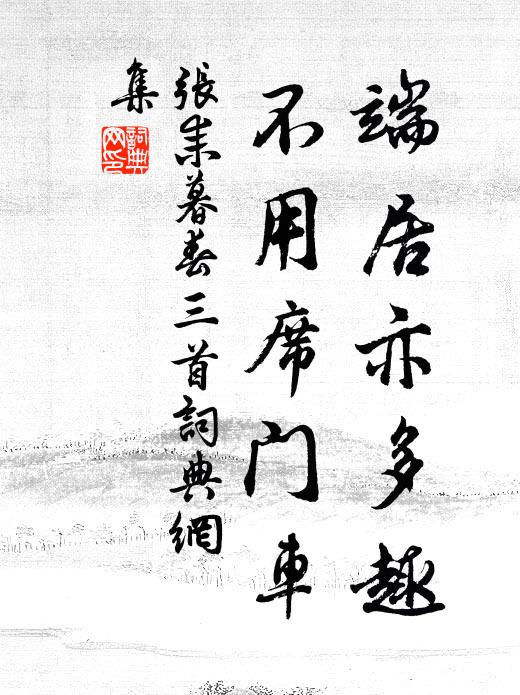 端居亦多趣
不用席门車
張耒暮春三首詞典網
集
詞典网印